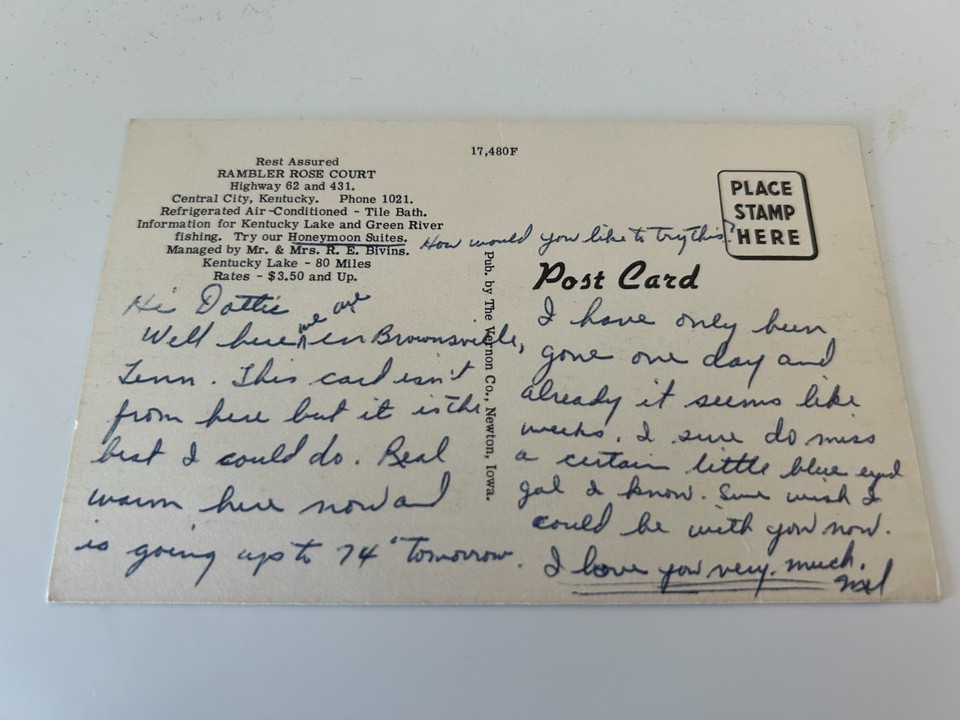 17,480F
Rest Assured
RAMBLER ROSE COURT
Highway 62 and 431.
Central City, Kentucky. Phone 1021.
Refrigerated Air-Conditioned - Tile Bath.
Information for Kentucky Lake and Green River
fishing. Try our Honeymoon Suites.
Managed by Mr. & Mrs. R. E. Bivins.
Kentucky Lake - 80 Miles
Rates - $3.50 and Up.
How would you like to try this?
PLACE
STAMP
HERE
Post Card
Pub. by The Vernon Co., Newton, Iowa.
Hi Dottie
Well here we are in Brownsville,
Tenn. This card isn't
from here but it is the
best I could do. Real
warm here now and
is going up to 74° tomorrow.
I have only been
gone one day and
already it seems like
weeks. I sure do miss
a certain little blue eyed
gal I know. Sure wish I
could be with you now.
I love you very much.
Mel